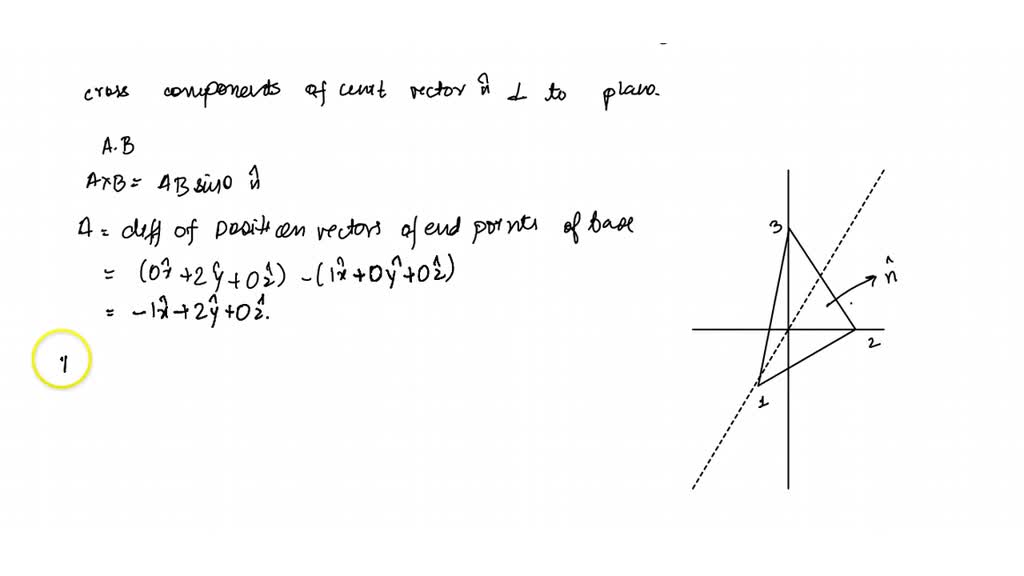 cross components of unit vector n̂ ⊥ to plane.
A.B
A×B = AB sinθ n̂
A = diff of position vectors of end points of base
= (0x̂ + 2ŷ + 0ẑ) - (1x̂ + 0ŷ + 0ẑ)
= -1x̂ + 2ŷ + 0ẑ.
3
n̂
2
1